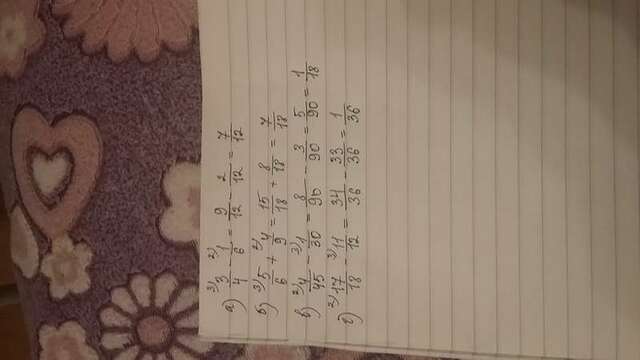 а) ³⁾3/4 - ²⁾1/6 = 9/12 - 2/12 = 7/12
б) ³⁾5/6 + ²⁾4/9 = 15/18 + 8/18 = 7/18
в) ²⁾4/45 - ³⁾1/30 = 8/90 - 3/90 = 5/90 = 1/18
г) ²⁾17/18 - ³⁾11/12 = 34/36 - 33/36 = 1/36